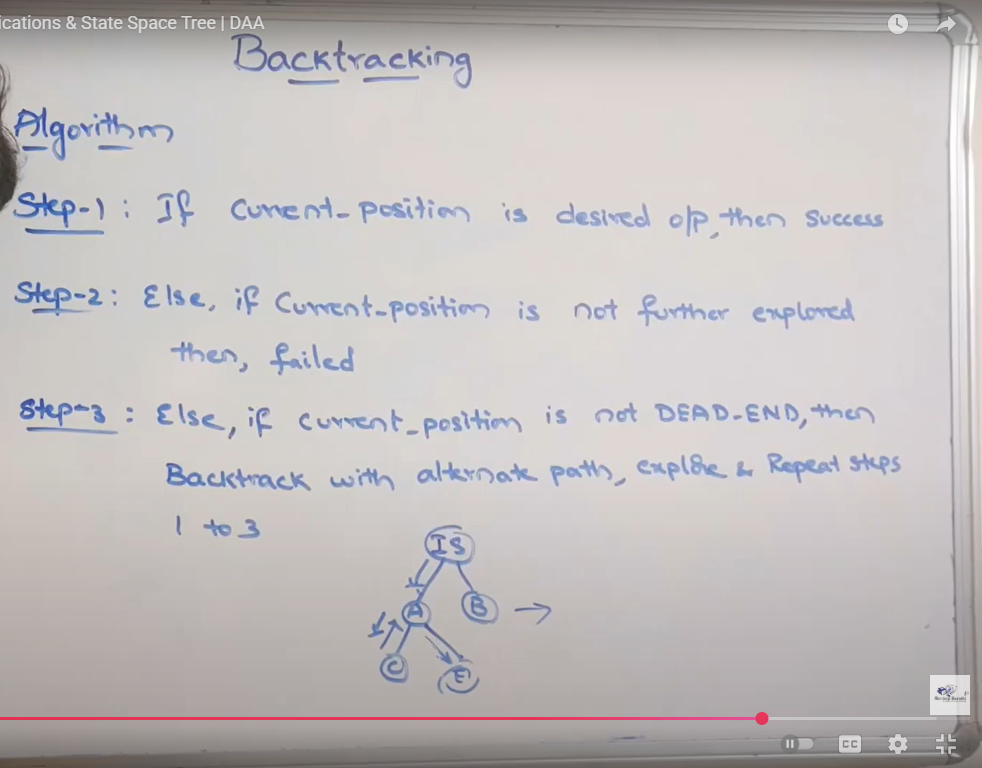 ications & State Space Tree | DAA
Backtracking
Algorithm
Step-1: If current-position is desired o/p, then success
Step-2: Else, if current-position is not further explored
then, failed
Step-3: Else, if current_position is not DEAD-END, then
Backtrack with alternate path, explore & Repeat steps
1 to 3
IS
A
B
C
E
CC